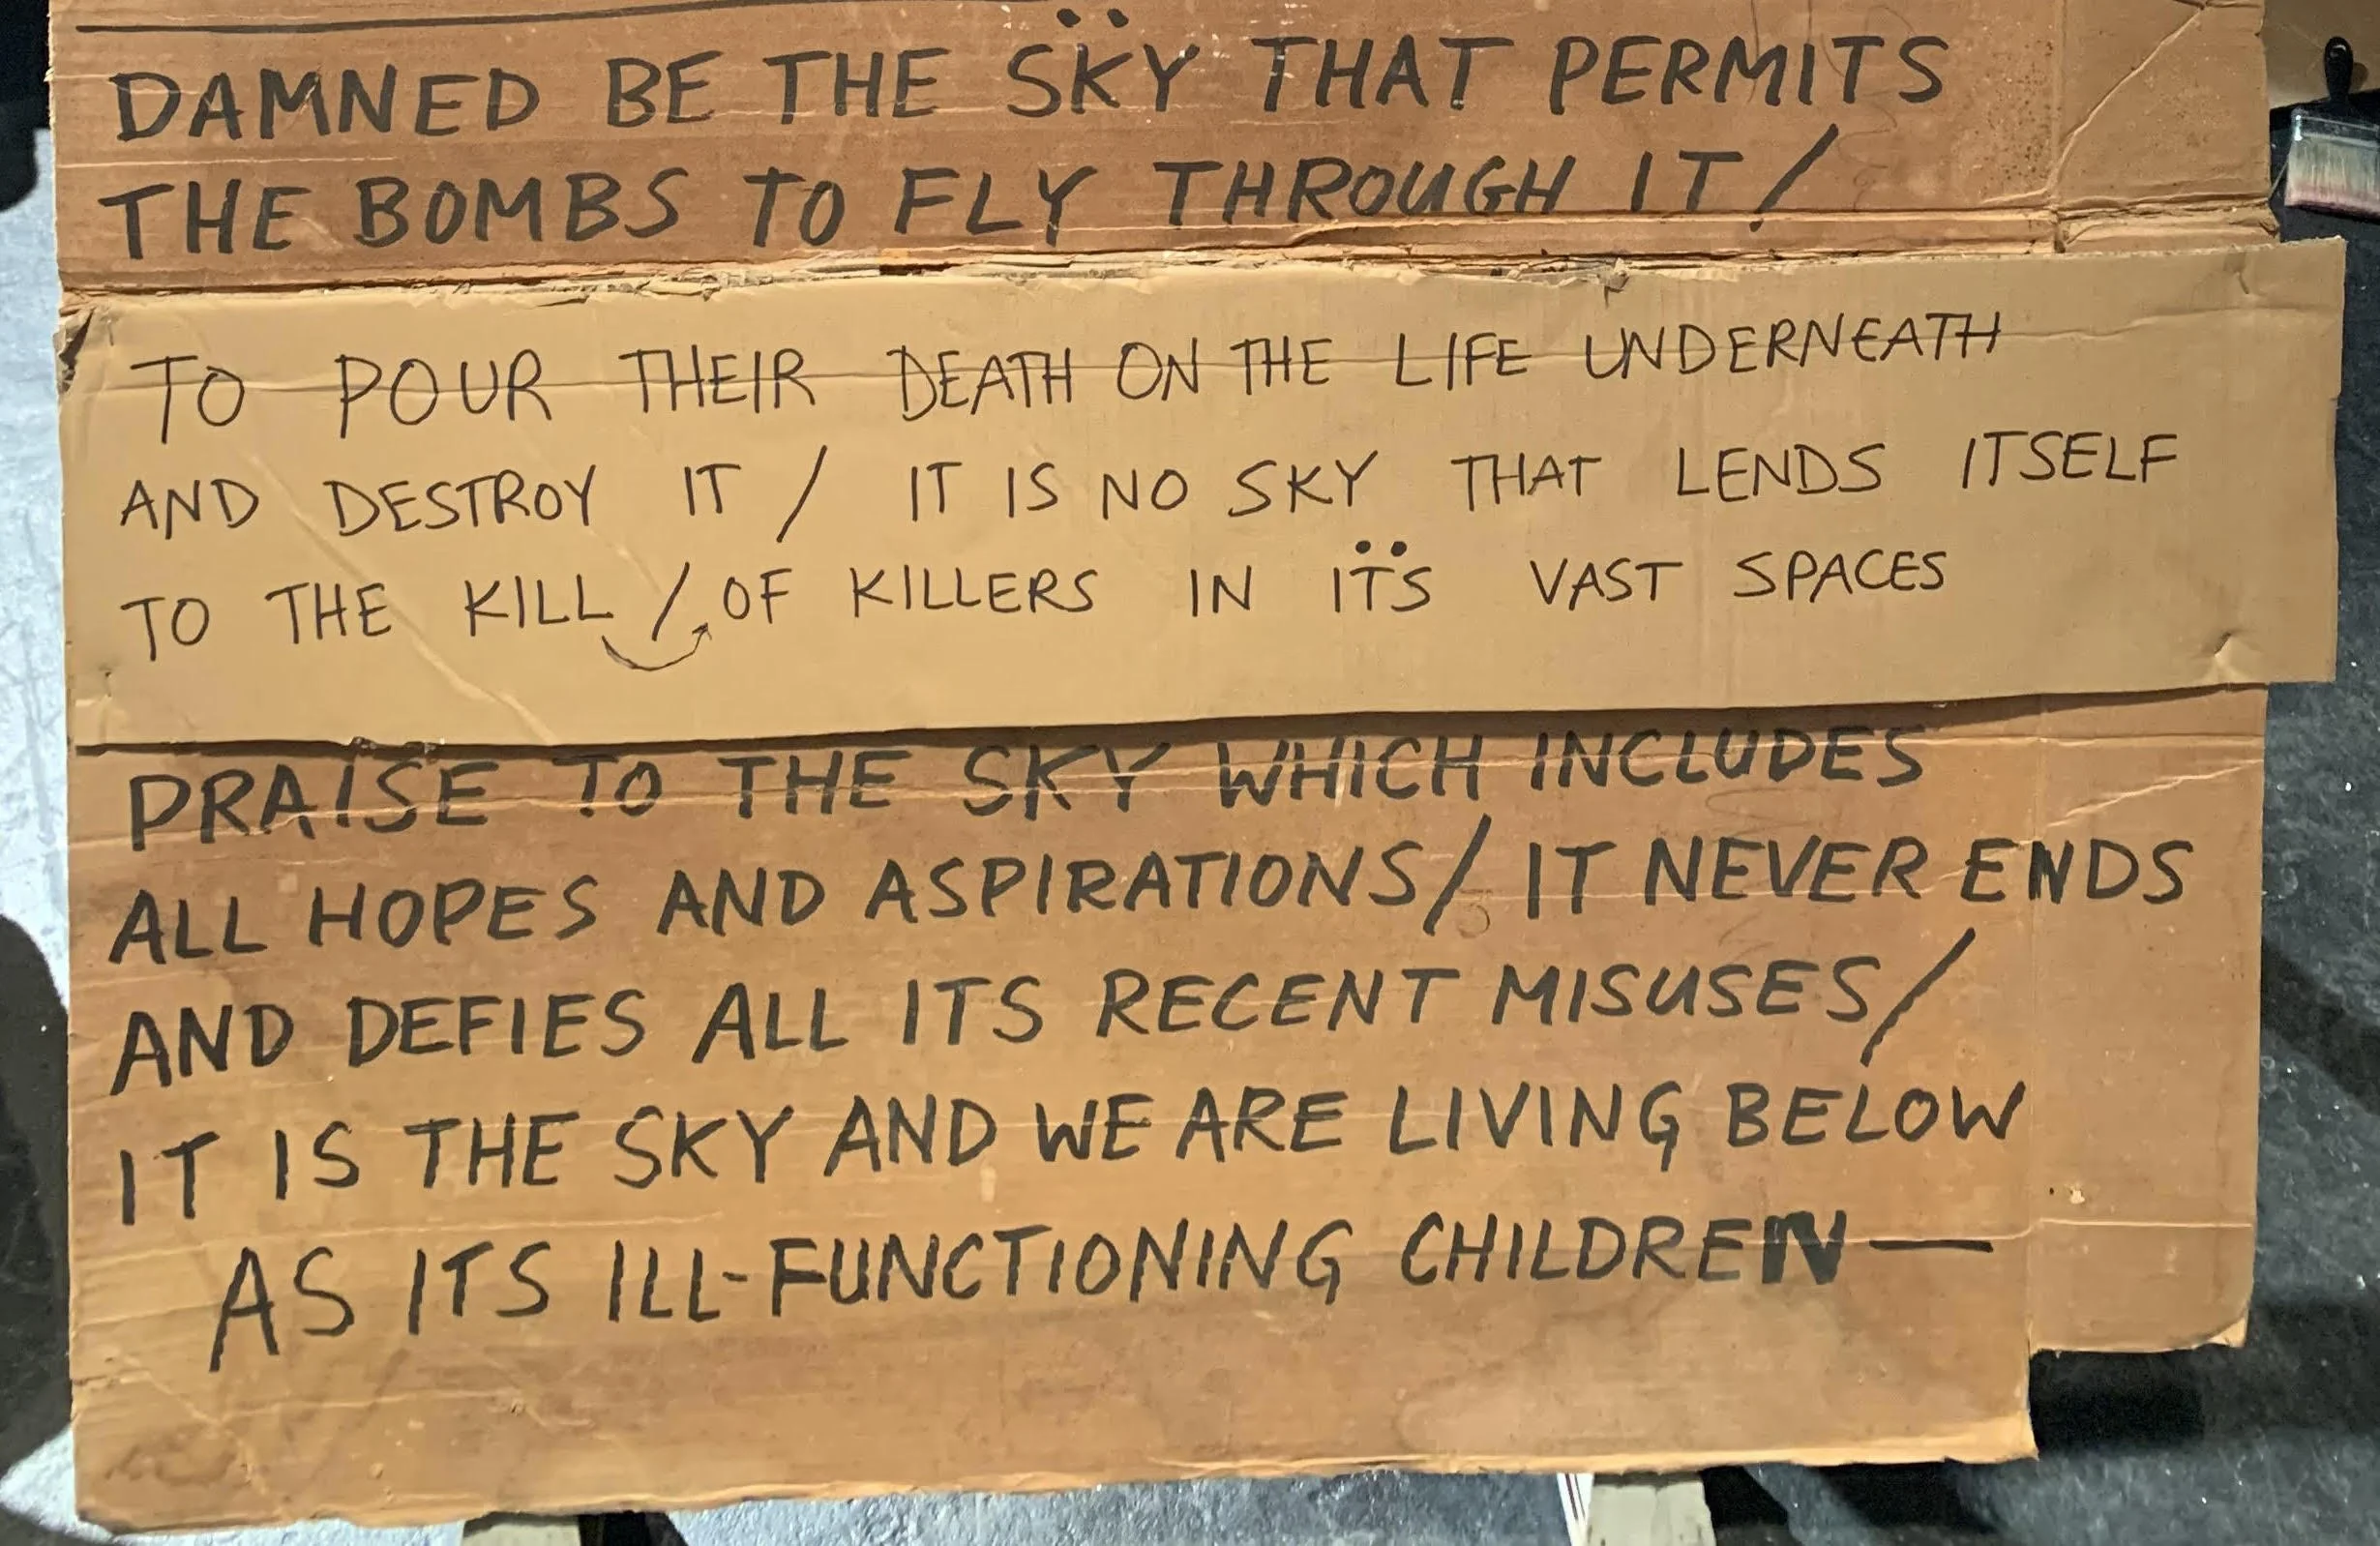 DAMNED BE THE SKY THAT PERMITS
THE BOMBS TO FLY THROUGH IT/
TO POUR THEIR DEATH ON THE LIFE UNDERNEATH
AND DESTROY IT / IT IS NO SKY THAT LENDS ITSELF
TO THE KILL / OF KILLERS IN ITS VAST SPACES
PRAISE TO THE SKY WHICH INCLUDES
ALL HOPES AND ASPIRATIONS/ IT NEVER ENDS
AND DEFIES ALL ITS RECENT MISUSES/
IT IS THE SKY AND WE ARE LIVING BELOW
AS ITS ILL-FUNCTIONING CHILDREN—